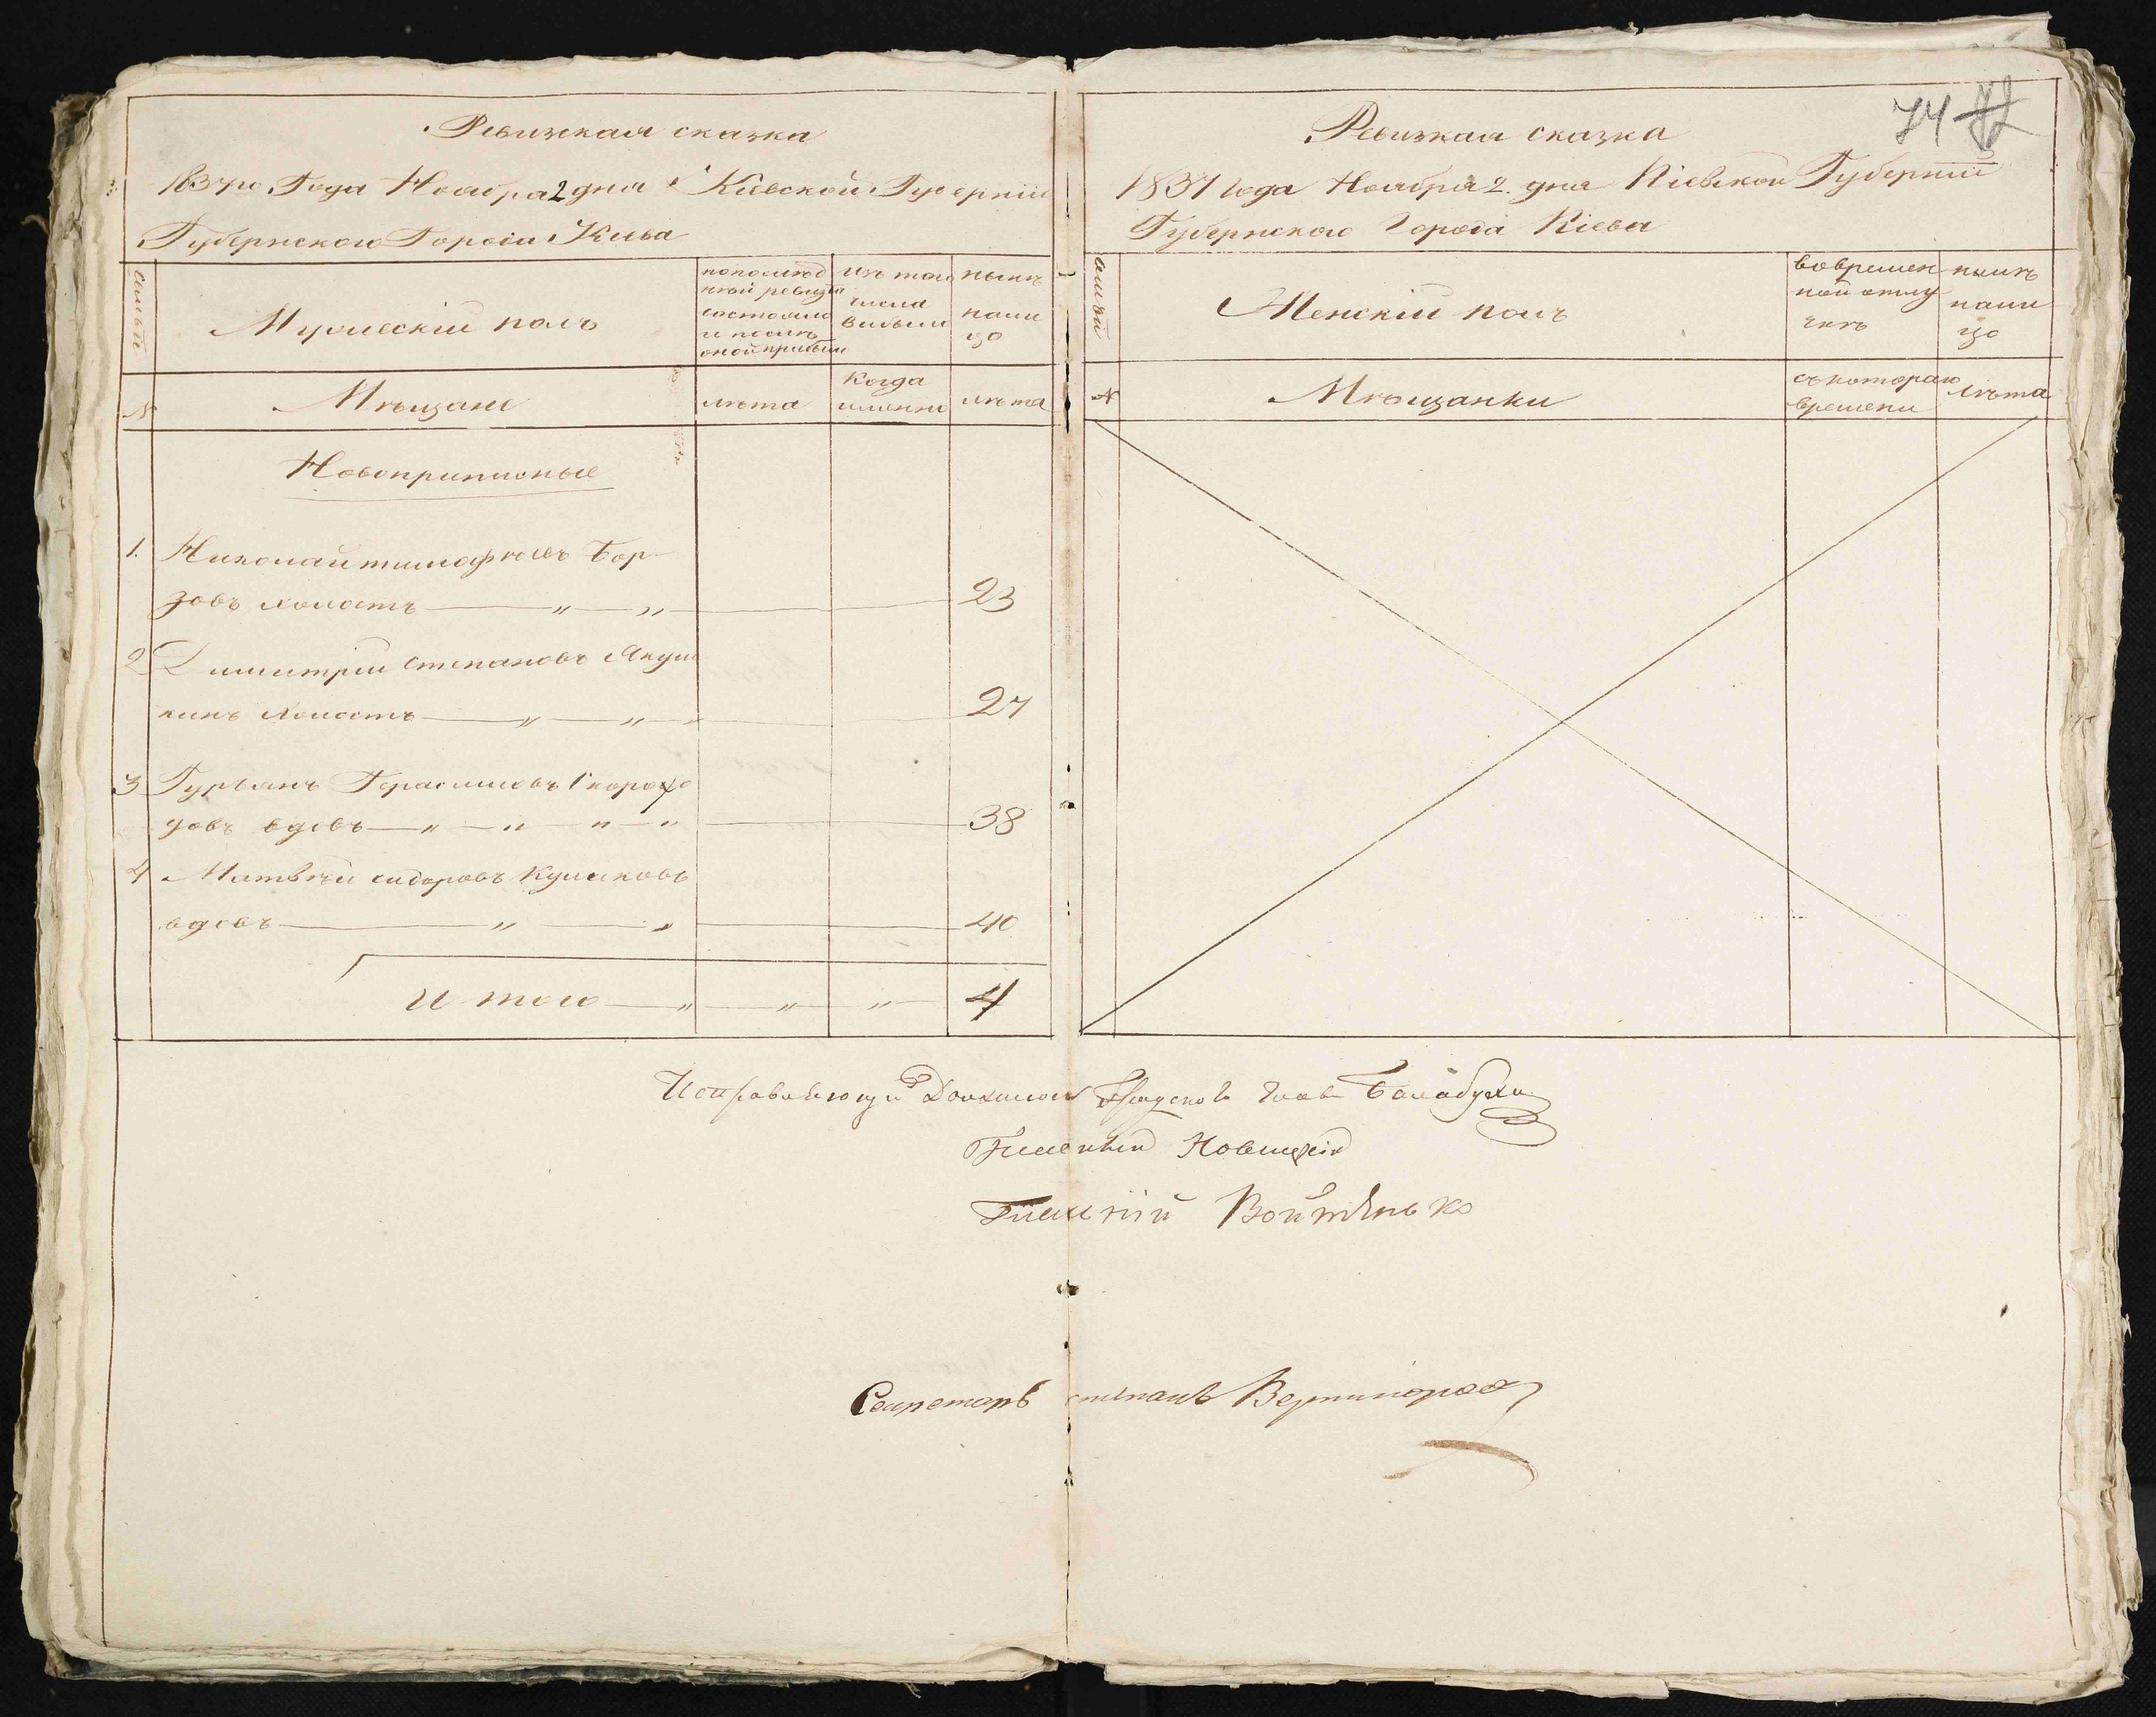 Ревизская сказка
1837го Года Ноября 2 дня Кіевской Губерніи
Губернскаго Города Кіева
семьи
Мужескій полъ
по послѣд
ней ревизіи
состояло
и послѣ
оной прибыло
изъ того
числа
выбыло
нынѣ
нали
цо
№
Мѣщане
лѣта
когда
именно
лѣта
Новоприписные
1. Николай тимофѣевъ Бор-
зовъ холостъ — „ — „ 23
2 Димитрій степановъ Якуш
кинъ холостъ — „ — „ 27
3 Гурьянъ Герасимовъ Скорохо
довъ вдовъ — „ — „ — „ — „ 38
4 Матвѣй сидоровъ Кулаковъ
вдовъ — „ — „ 40
Итого — „ — „ — „ 4
74
Ревизкая сказка
1837 года Ноября 2. дня Кіевской Губерніи
Губернскаго Города Кіева
семьи
Женскій полъ
во времен
ной отлу
чкѣ
нынѣ
нали
цо
№
Мѣщанки
съ котораго
времени
лѣта
Исправляющій Должность Градскаго Главы Балабуха
Гласный Новицкій
Гласный Войтенько
Секретарь степанъ Вернигора